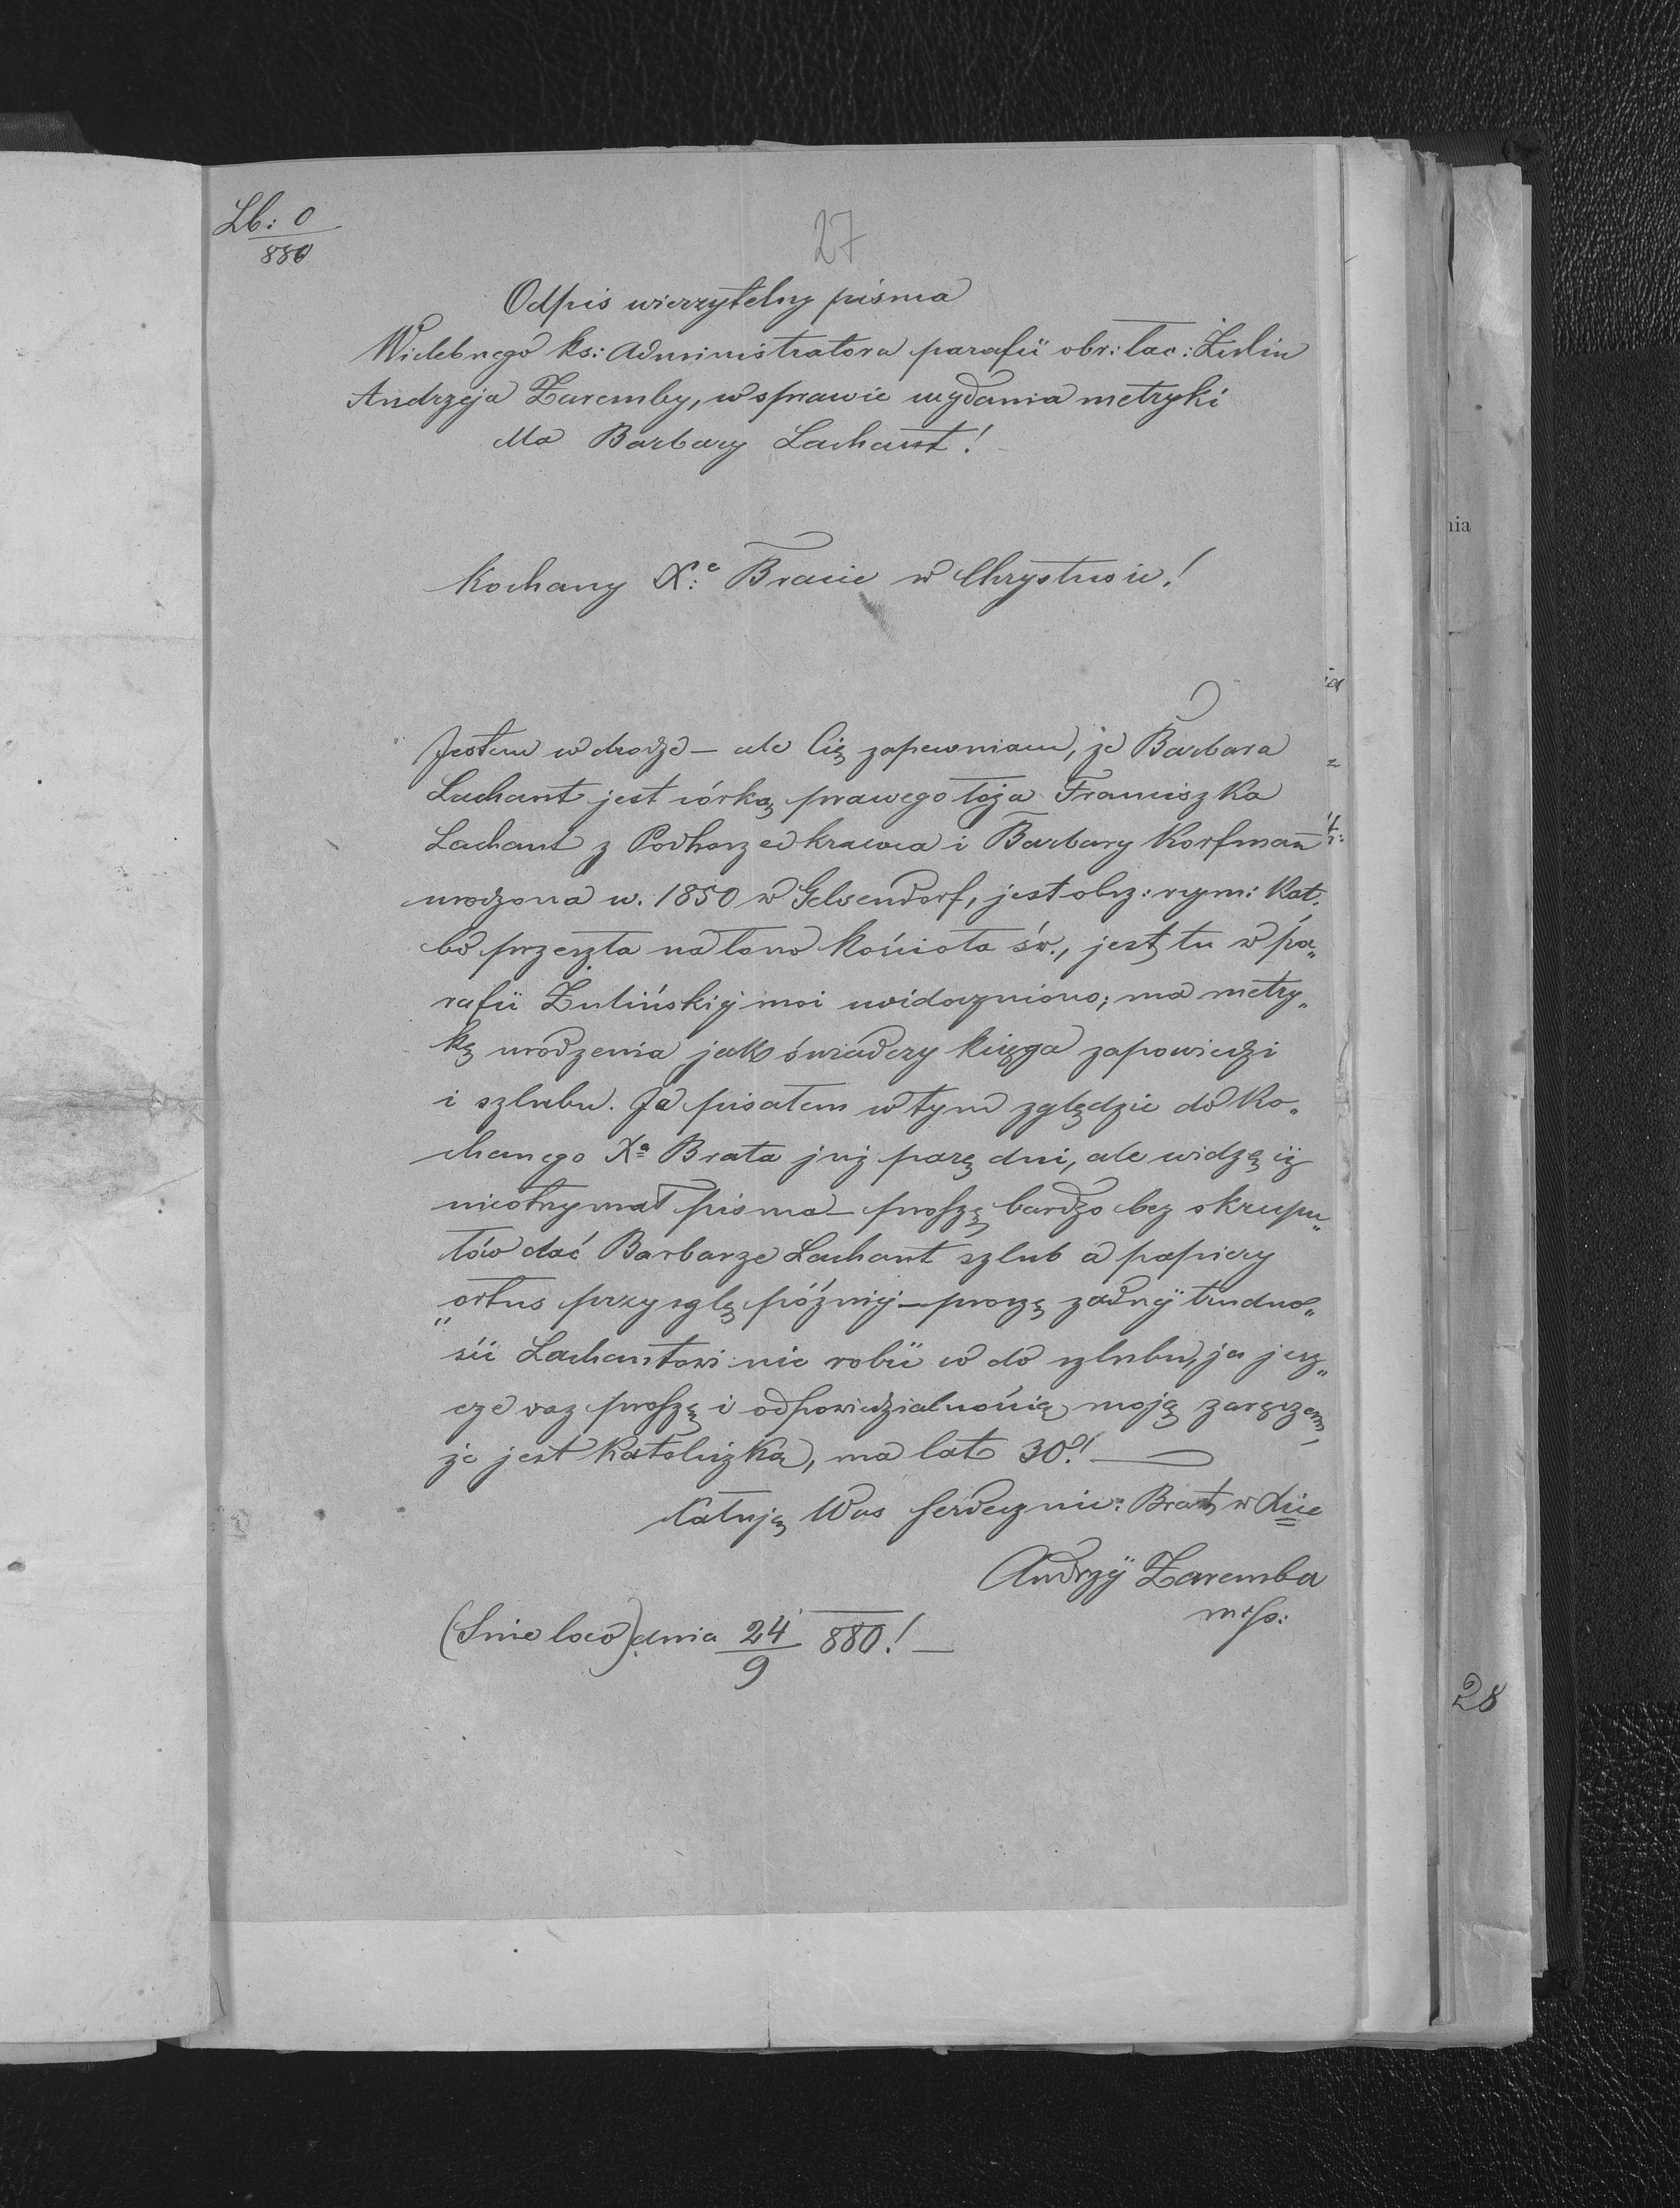 Lb: 0
880
27
Odpis wierzytelny pisma
Wielebnego ks: Administratora parafii obr: łac: Żulin
Andrzeja Zaremby, w sprawie wydania metryki
dla Barbary Lachant!
Kochany X:e Bracie w Chrystusie!
Jestem w drodze – ale Cię zapewniam, że Barbara
Lachant jest córką prawego łoża Franciszka
Lachant z Podhorzec krawca i Barbary Korfmann
urodzona w. 1850 w Gelsendorf, jest obrz: rzym: Kat.
bo przeszła na łono kościoła św., jest tu w pa„
rafii Żulińskiej moi uwidoczniono; ma metry„
kę urodzenia jak świadczy księga zapowiedzi
i szlubu. Ja pisałem w tym zględzie do Ko„
chanego Xa Brata już parę dni, ale widzę iż
nieotrzymał pisma – proszę bardzo bez skrupu„
łów dać Barbarze Lachant szlub a papiery
„ortus przyszlę później – proszę żadnej trudno„
ści Lachantowi nie robić w do szlubu, ja jesz„
cze raz proszę i odpowiedzialnością moją zaręczam,
że jest Katoliczką, ma lat 30! —
Całuję Was serdecznie: Brat w Xcie
Andrzej Zaremba
mp:
(Sine loco) dnia 24/9 880! —
nia
28